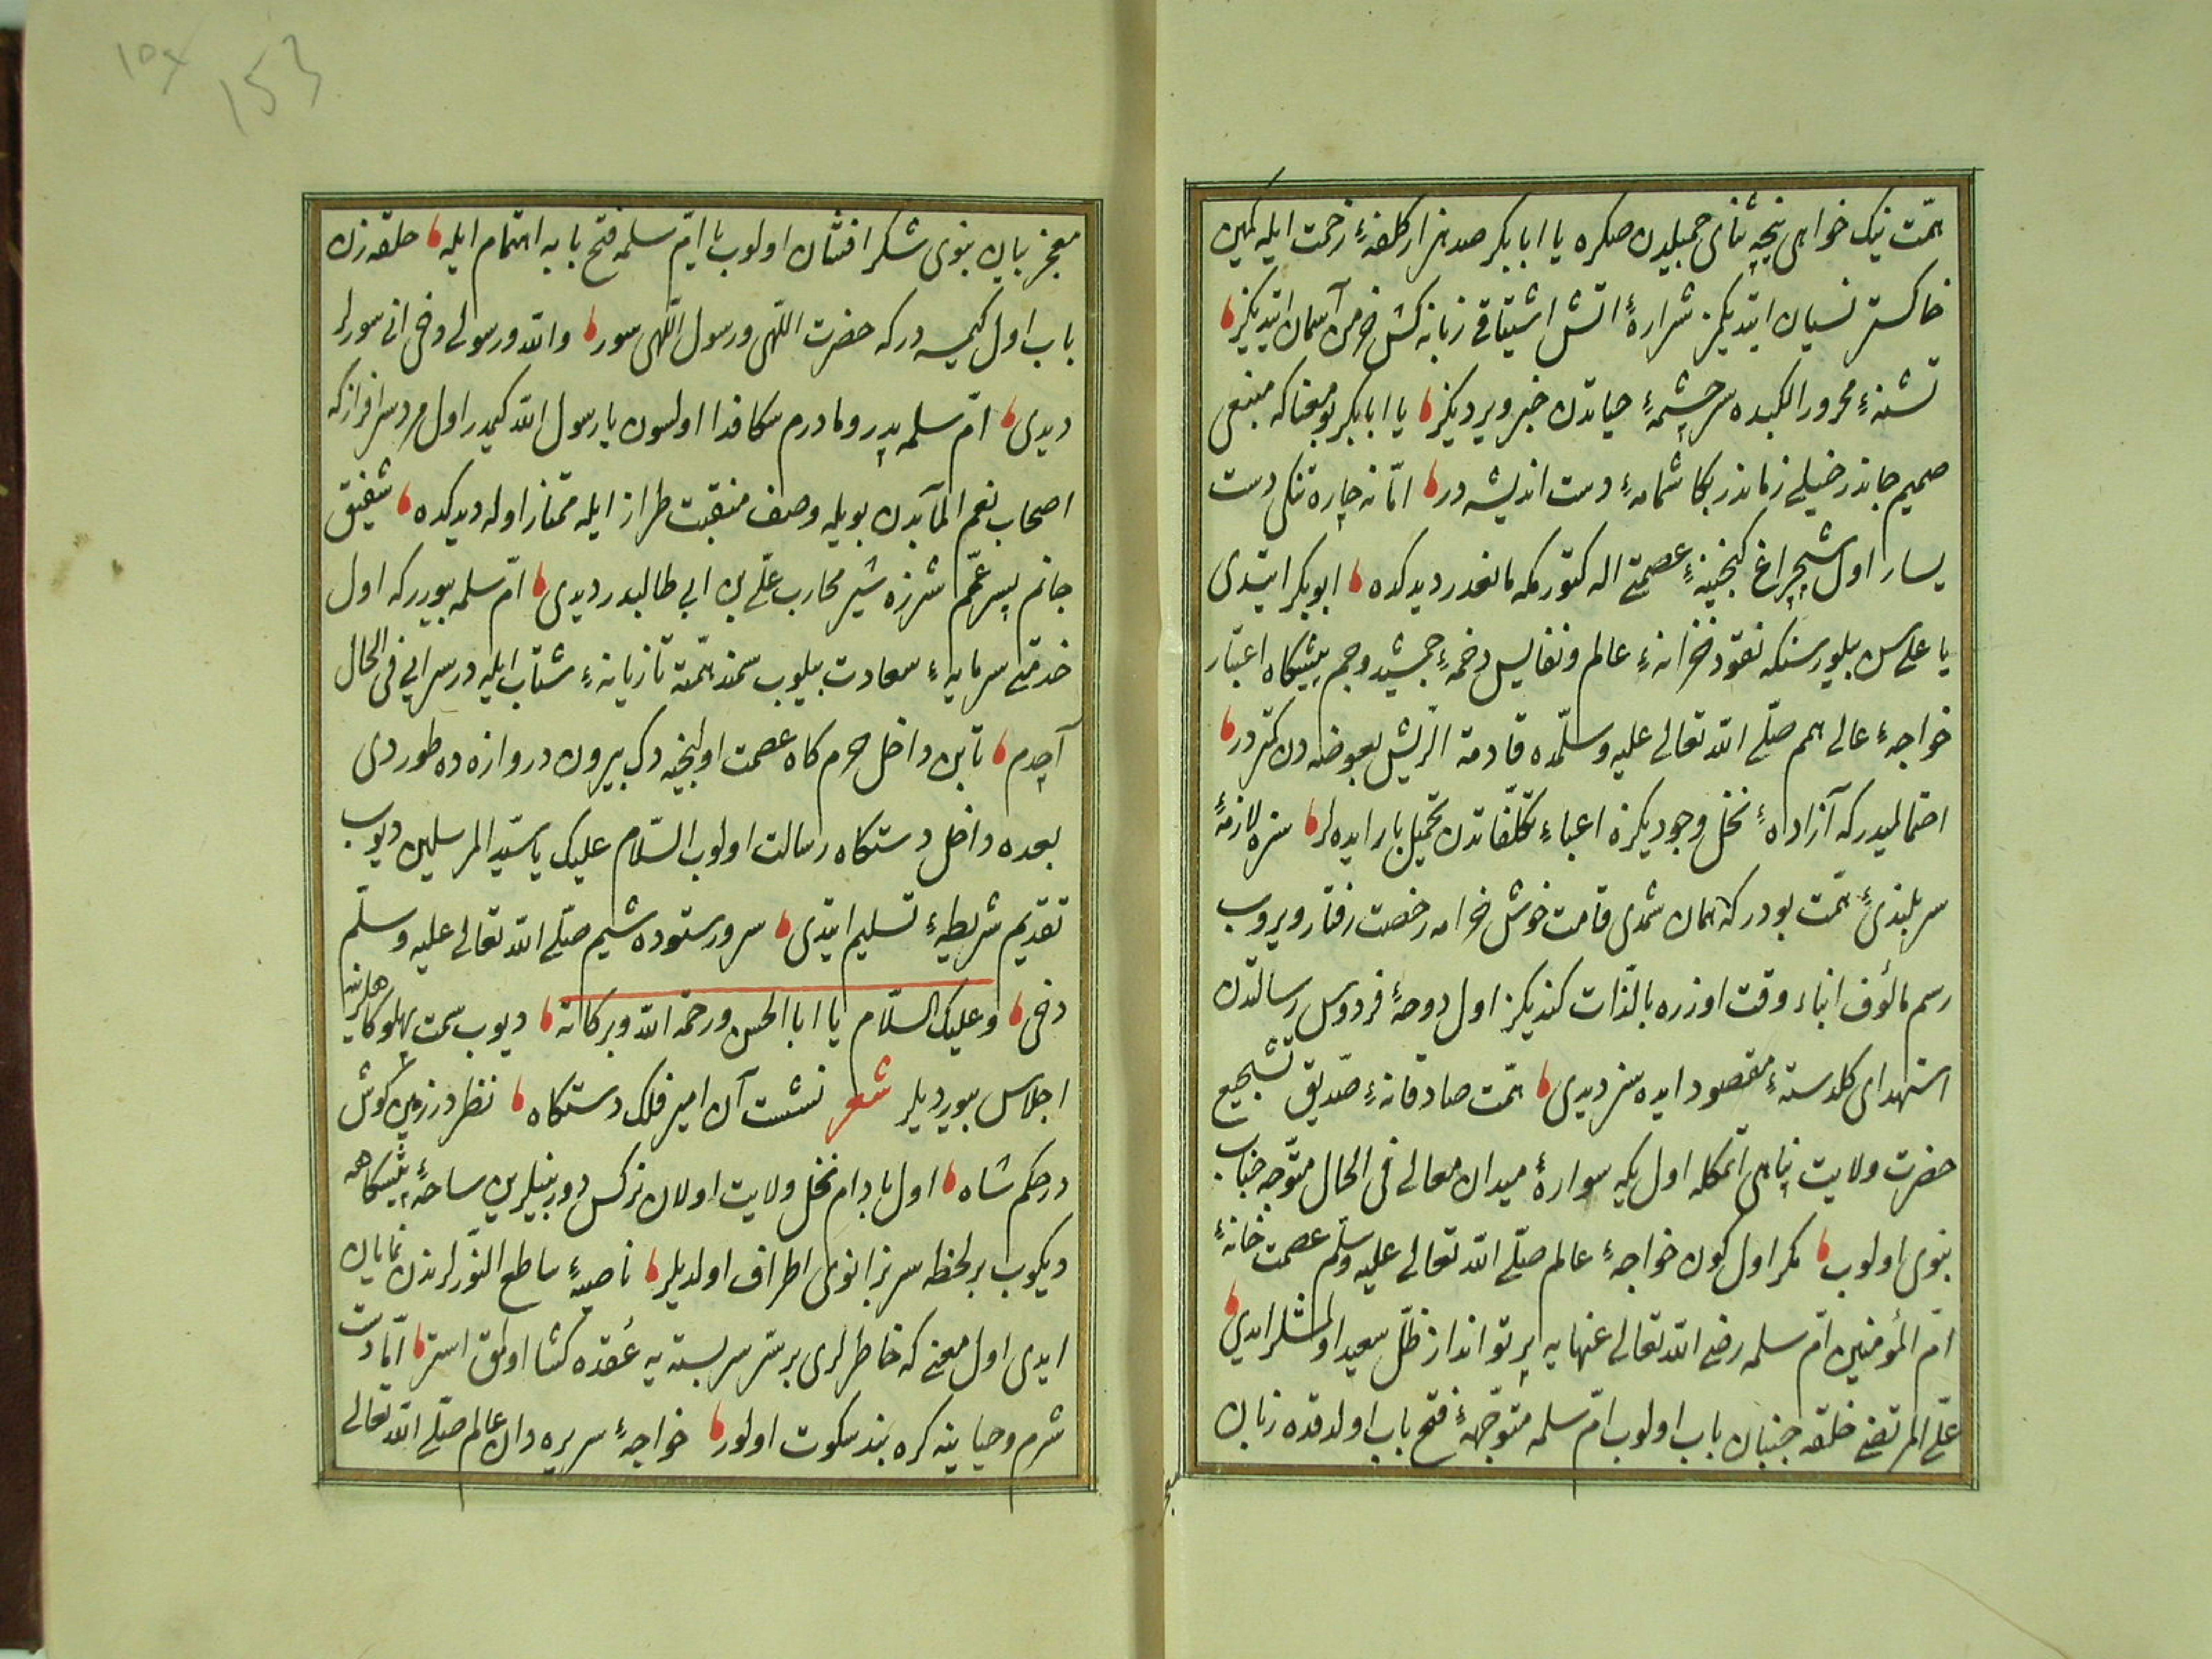 همّت نیک خواهی نیجه ثنای جمیلدن صکره یا ابا بکر صد هزار کلفهٔ زحمت ایله کمین
خاکستر نسیان ایتدیکمز شرارهٔ اتش اشتیاقی زبانه کش خرمن آسمان ایتدیکز
تشنهٔ محرور الکبده سرچشمهٔ حیاتدن خبر ویردیکز یا ابا بکر بو معنا که منبعی
صمیم جاندر خیلی زماندر بکا شمامهٔ دست اندیشه در امّا نه چاره تنکی دست
یسار اول شبچراغ کنجینهٔ عصمتی اله کتورمکه مانعدر دیدکده ابو بکر ایتدی
یا علی سن بیلورسنکه نقود خزانهٔ عالم و نفایس دخمهٔ جمشید و جم پیشکاه اعتبار
خواجهٔ عالی همم صلّی الله تعالی علیه وسلّمده قادمة الرّیش بعوضه دن کمتردر
احتمالمیدر که آزادهٔ نخل وجودیکزه اعباء تکلّفاتدن تحمیل بار ایده لر سزه لازمهٔ
سر بلندئ همّت بودر که همان شمدی قامت خوش خرامه رخصت رفتار ویروب
رسم مألوف ابناء وقت اوزره بالذّات کندیکز اول دوحهٔ فردوس رسالتدن
استهدای کلدستهٔ مقصود ایده سز دیدی همّت صادقانهٔ صدّیق تشجیع
حضرت ولایت پناهی اتمکله اول یکه سوارهٔ میدان معالی فی الحال متوّجه جناب
نبوی اولوب مکر اول کون خواجهٔ عالم صلّی الله تعالی علیه وسلّم عصمت خانهٔ
امّ المؤمنین امّ سلمه رضی الله تعالی عنهایه پرتو انداز ظلّ سعید اولمشلر ایدی
علیّ المرتضی حلقه جنبان باب اولوب امّ سلمه متوجّههٔ فتح باب اولدقده زبان
معجز
153
معجز بیان نبوی شکر افشان اولوب یا امّ سلمه فتح بابه اهتمام ایله حلقه زن
باب اول کیمسه در که حضرت اللّهی و رسول اللّهی سور والله و رسولی دخی انی سورلر
دیدی امّ سلمه پدر و مادرم سکا فدا اولسون یا رسول الله کیمدر اول مرد سرافراز که
اصحاب نعم المآبدن بویله وصف منقبت طراز ایله ممتاز اوله دیدکده شفیق
جانم پسر عمّم شرزه شیر محارب علیّ بن ابی طالبدر دیدی امّ سلمه بیوررکه اول
خدمتی سرمایهٔ سعادت بیلوب سمند همّته تازیانهٔ شتاب ایله در سرایی فی الحال
آچدم تا بن داخل حرم کاه عصمت اولنجیه دک بیرون دروازه ده طوردی
بعده داخل دستکاه رسالت اولوب السّلام علیک یا سیّد المرسلین دیوب
تقدیم شریطهٔ تسلیم ایتدی سرور ستوده شیم صلّی الله تعالی علیه وسلّم
دخی وعلیک السّلام یا ابا الحسن ورحمة الله وبرکاته دیوب سمت پهلوکاهلرینه
اجلاس بیوردیلر شعر نشست آن امیر فلک دستکاه نظر در زمین کوش
در حکم شاه اول بادام نخل ولایت اولان نرکس دوربینلرین ساحهٔ پیشکاهه
دیکوب بر لحظه سر بزانوی اطراف اولدیلر ناصیهٔ ساطع النّورلرندن نمایان
ایدی اول معنی که خاطرلری بر سرّ سربسته یه عُقده کشا اولمق استر امّا دست
شرم و حیا ینه کره بند سکوت اولور خواجهٔ سریره دان عالم صلّی الله تعالی